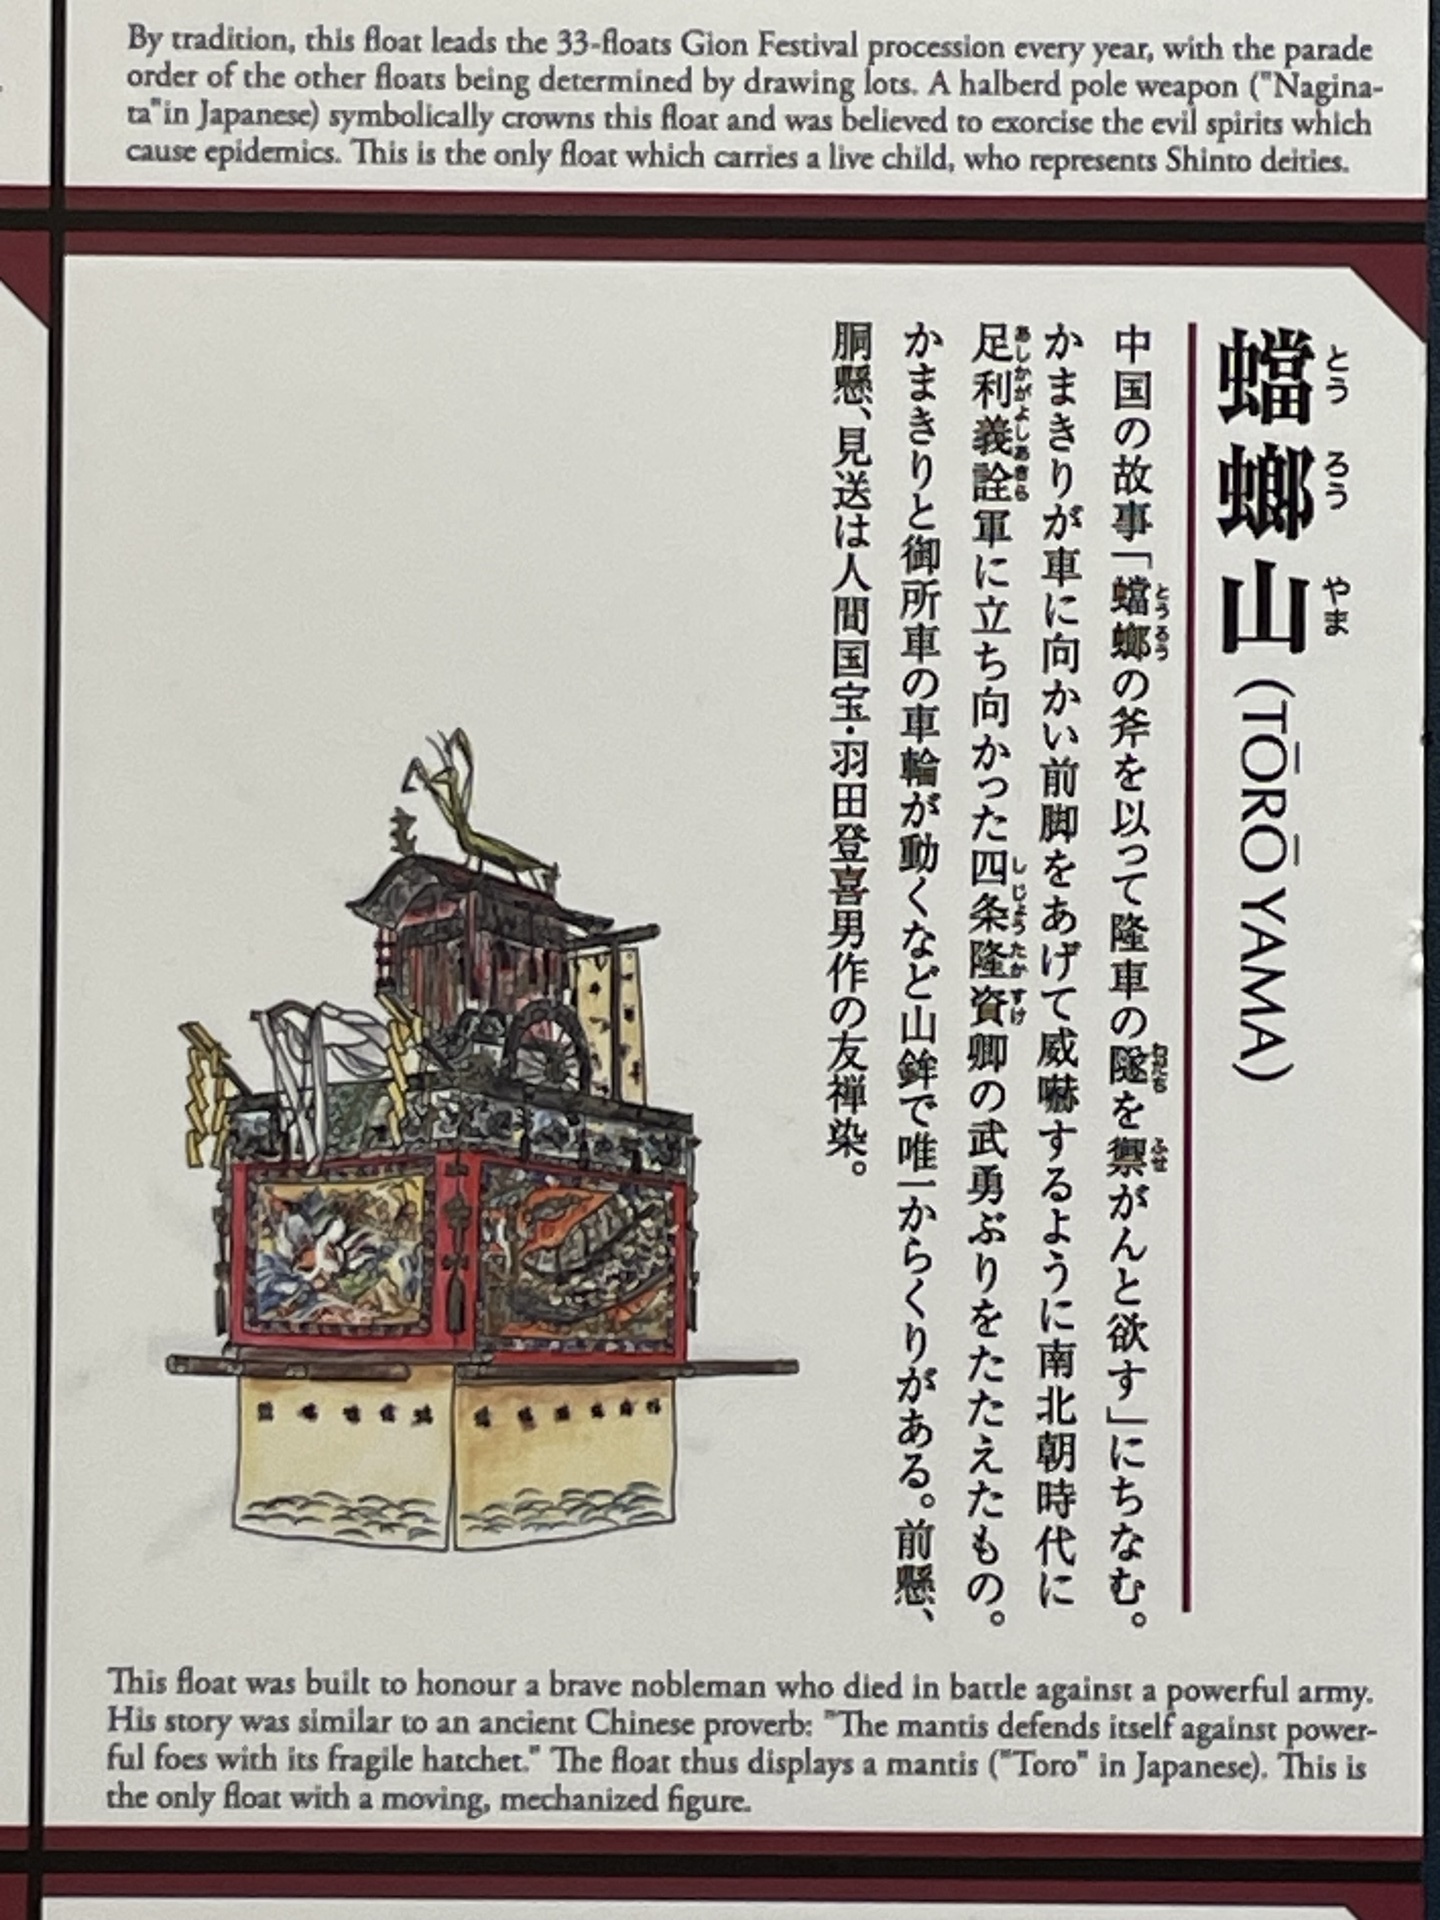 By tradition, this float leads the 33-floats Gion Festival procession every year, with the parade
order of the other floats being determined by drawing lots. A halberd pole weapon ("Nagina-
ta"in Japanese) symbolically crowns this float and was believed to exorcise the evil spirits which
cause epidemics. This is the only float which carries a live child, who represents Shinto deities.
蟷螂山 (TŌRŌ YAMA)
とう ろう やま
中国の故事「蟷螂の斧を以って隆車の隧を禦がんと欲す」にちなむ。
とうろう わだち ふせ
かまきりが車に向かい前脚をあげて威嚇するように南北朝時代に
足利義詮軍に立ち向かった四条隆資卿の武勇ぶりをたたえたもの。
あしかがよしあきら しじょうたかすけ
かまきりと御所車の車輪が動くなど山鉾で唯一からくりがある。前懸、
胴懸、見送は人間国宝・羽田登喜男作の友禅染。
This float was built to honour a brave nobleman who died in battle against a powerful army.
His story was similar to an ancient Chinese proverb: "The mantis defends itself against power-
ful foes with its fragile hatchet." The float thus displays a mantis ("Toro" in Japanese). This is
the only float with a moving, mechanized figure.